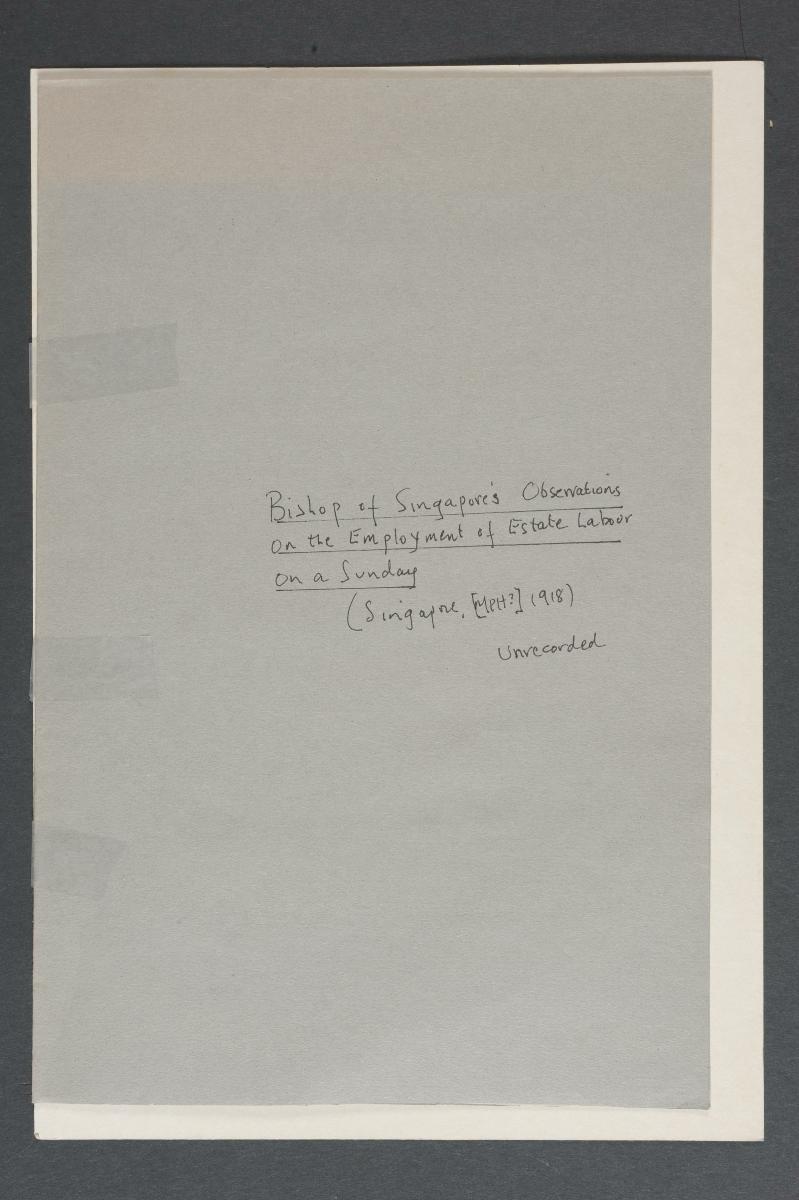 Bishop of Singapore's Observations
on the Employment of Estate Labour
on a Sunday
(Singapore, [MPH?] 1918)
Unrecorded